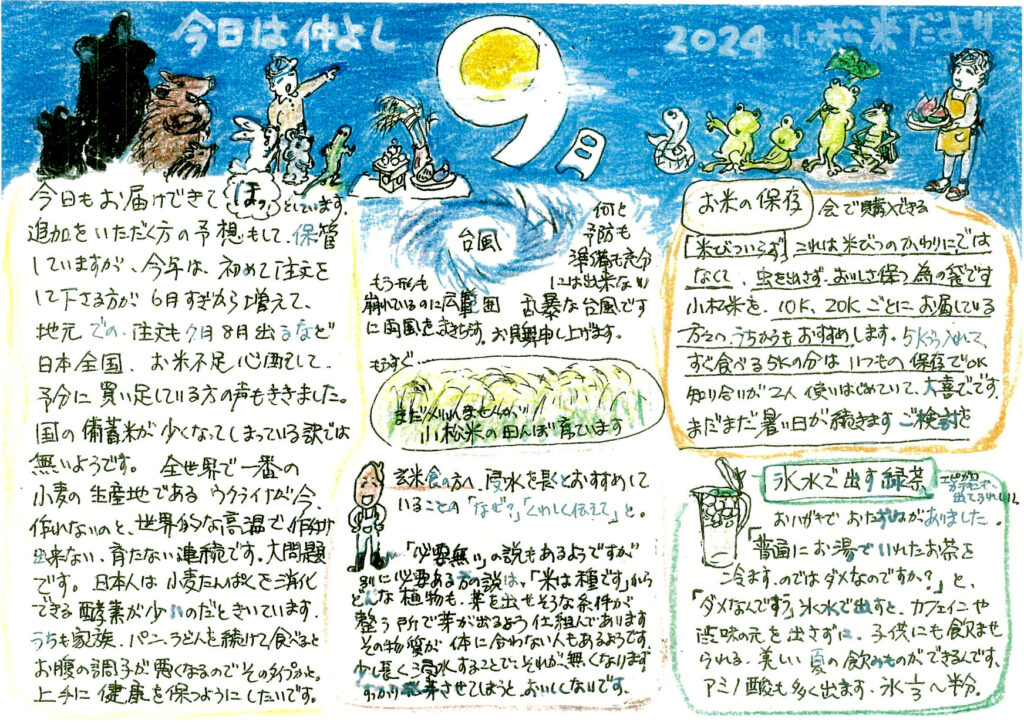 今日は仲よし
9月
2024 小松米だより
今日もお届けできて ほっ としています。
追加をいただく方の予想もして、保管
していますが、今年は、初めて注文を
して下さる方が 6月すぎから増えて、
地元での注文も7月8月出るなど
日本全国、お米不足心配して、
予分に買い足している方の声もききました。
国の備蓄米が少くなってしまっている訳では
無いようです。 全世界で一番の
小麦の生産地である ウクライナが今、
作れないのと、世界的な高温で作付け
出来ない、育たない連続です。大問題
です。日本人は小麦たんぱくを消化
できる酵素が少いのだときいています。
うちも家族、パン、うどんを続けて食べると
お腹の調子が悪くなるのでそのタイプかと。
上手に健康を保つようにしたいです。
台風
何と
予防も
準備も充分
には出来ない
乱暴な台風です
お見舞申し上げます。
もう形も
崩れているのに広範囲
に雨風をまきちらす。
もうすぐ…
まだ刈りれませんが
小松米の田んぼ 育ています
玄米食の方へ、浸水を長くとおすすめして
いることの「なぜ?」「くわしく伝えて」と。
「必要無い」の説もあるようですが
に必要ある方の説は、「米は種です」から
どんな植物も、芽を出せそうな条件が
整う所で芽が出るよう仕組んであります
その物質が 体に合わない人もあるようです。
少し長く浸水することで、それが無くなります
すっかり発芽させてしまうと、おいしくないです。
お米の保存
会で購入できる
「米びついらず」これは米びつのかわりにでは
なくて、虫を出さず、おいしさ保つ為の袋です
小松米を、10K、20Kごとにお届している
方々の うちからもおすすめします。5Kずつ入れて、
すぐ食べる5Kの分は いつもの保存でOK
知り合いが2人 使いはじめていて、大喜びです。
まだまだ暑い日が続きます ご検討を
氷水で出す緑茶
おハガキで おたずねがありました。
「普通にお湯でいれたお茶を
冷ます、のではダメなのですか?」と、
「ダメなんです」氷水で出すと、カフェインや
渋味の元を出さずに、子供にも飲ませ
られる、美しい夏の飲みものができるんです、
アミノ酸も多く出ます。